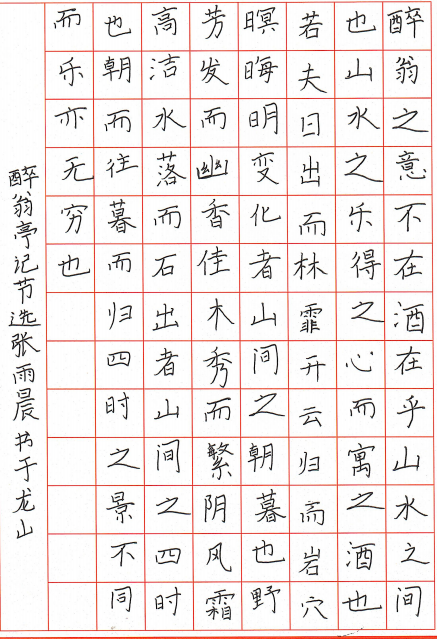 醉翁之意不在酒在乎山水之间
也山水之乐得之心而寓之酒也
若夫日出而林霏开云归高岩穴
暝晦明变化者山间之朝暮也野
芳发而幽香佳木秀而繁阴风霜
高洁水落而石出者山间之四时
也朝而往暮而归四时之景不同
而乐亦无穷也
醉翁亭记节选张雨晨书于龙山